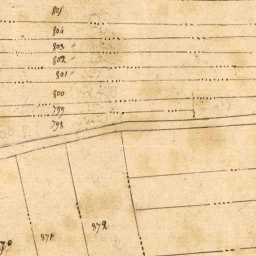 804
803
802
801
800
799
798
972
971